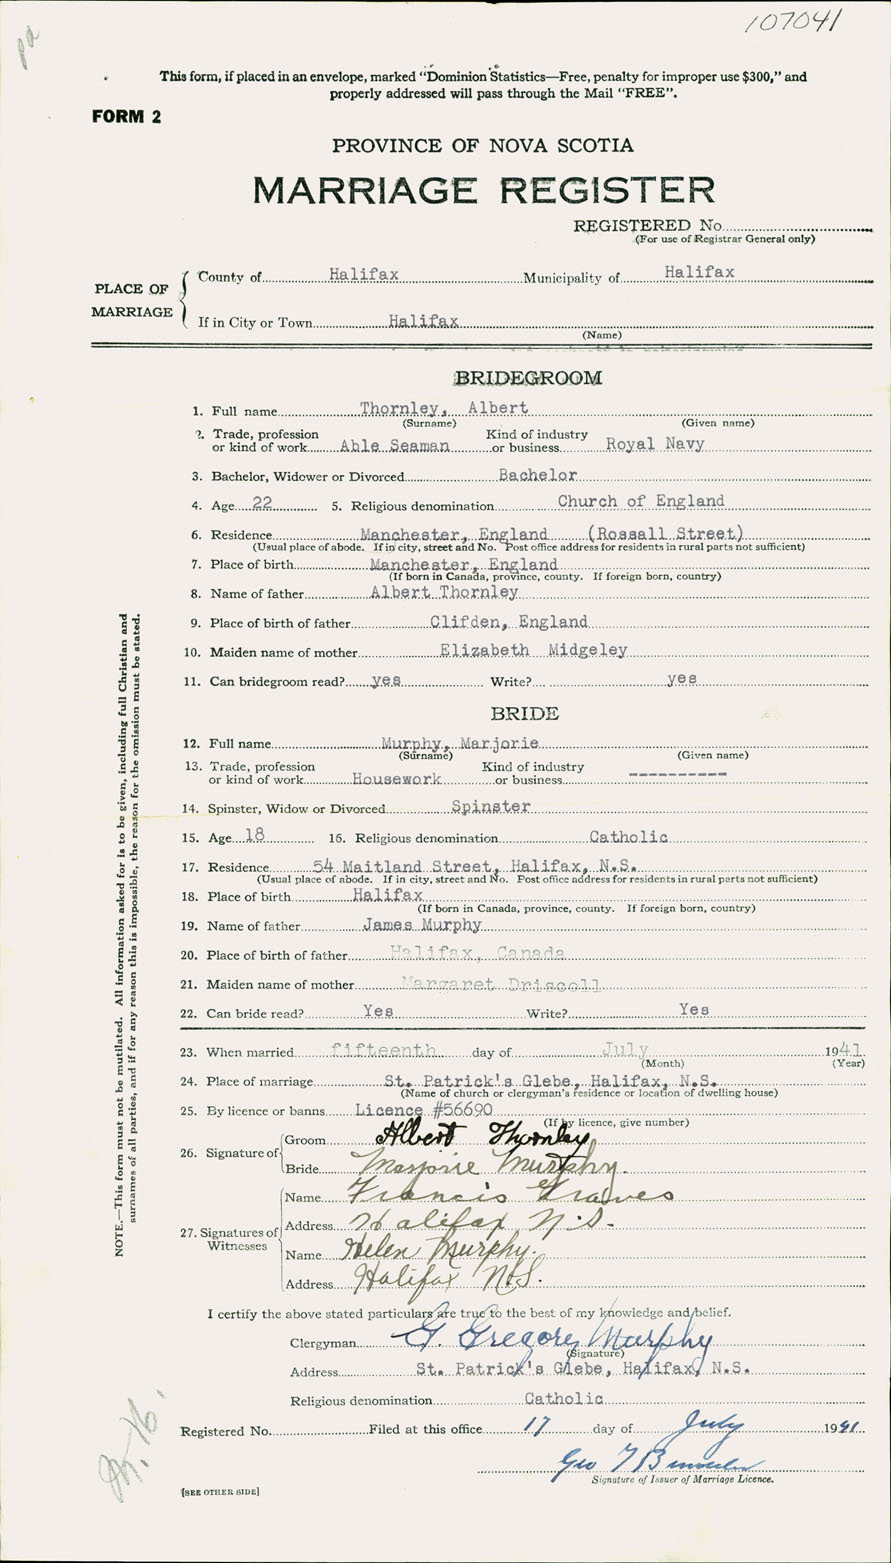 107041
pa
This form, if placed in an envelope, marked “Dominion Statistics—Free, penalty for improper use $300,” and
properly addressed will pass through the Mail “FREE”.
FORM 2
PROVINCE OF NOVA SCOTIA
MARRIAGE REGISTER
REGISTERED No.
(For use of Registrar General only)
PLACE OF MARRIAGE
County of Halifax Municipality of Halifax
If in City or Town Halifax
(Name)
BRIDEGROOM
1. Full name Thornley, Albert
(Surname) (Given name)
2. Trade, profession or kind of work Able Seaman Kind of industry or business Royal Navy
3. Bachelor, Widower or Divorced Bachelor
4. Age 22 5. Religious denomination Church of England
6. Residence Manchester, England (Rossall Street)
(Usual place of abode. If in city, street and No. Post office address for residents in rural parts not sufficient)
7. Place of birth Manchester, England
(If born in Canada, province, county. If foreign born, country)
8. Name of father Albert Thornley
9. Place of birth of father Clifden, England
10. Maiden name of mother Elizabeth Midgeley
11. Can bridegroom read? yes Write? yes
BRIDE
12. Full name Murphy, Marjorie
(Surname) (Given name)
13. Trade, profession or kind of work Housework Kind of industry or business ----------
14. Spinster, Widow or Divorced Spinster
15. Age 18 16. Religious denomination Catholic
17. Residence 54 Maitland Street, Halifax, N.S.
(Usual place of abode. If in city, street and No. Post office address for residents in rural parts not sufficient)
18. Place of birth Halifax
(If born in Canada, province, county. If foreign born, country)
19. Name of father James Murphy
20. Place of birth of father Halifax, Canada
21. Maiden name of mother Margaret Driscoll
22. Can bride read? Yes Write? Yes
23. When married fifteenth day of July 1941
(Month) (Year)
24. Place of marriage St. Patrick's Glebe, Halifax, N.S.
(Name of church or clergyman's residence or location of dwelling house)
25. By licence or banns Licence #56690
(If by licence, give number)
26. Signature of
Groom Albert Thornley
Bride Marjorie Murphy.
27. Signatures of Witnesses
Name Francis Graves
Address Halifax N.S.
Name Helen Murphy.
Address Halifax N.S.
I certify the above stated particulars are true to the best of my knowledge and belief.
Clergyman G. Gregory Murphy
(Signature)
Address St. Patrick's Glebe, Halifax, N.S.
Religious denomination Catholic
Registered No. Filed at this office 17 day of July 1941
Geo
Signature of Issuer of Marriage Licence.
[SEE OTHER SIDE]
NOTE.—This form must not be mutilated. All information asked for is to be given, including full Christian and
surnames of all parties, and if for any reason this is impossible, the reason for the omission must be stated.